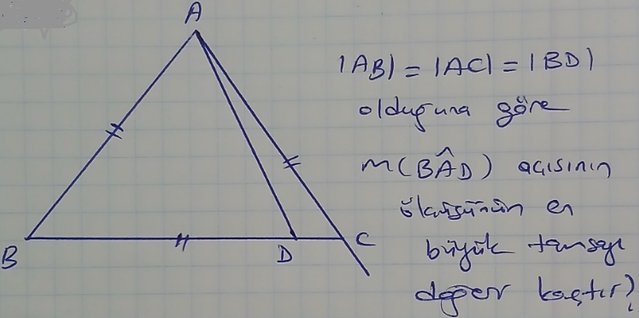 A
|AB| = |AC| = |BD|
olduğuna göre
m(BÂD) açısının
ölçüsünün en
büyük tamsayı
değer kaçtır?
B
D
C